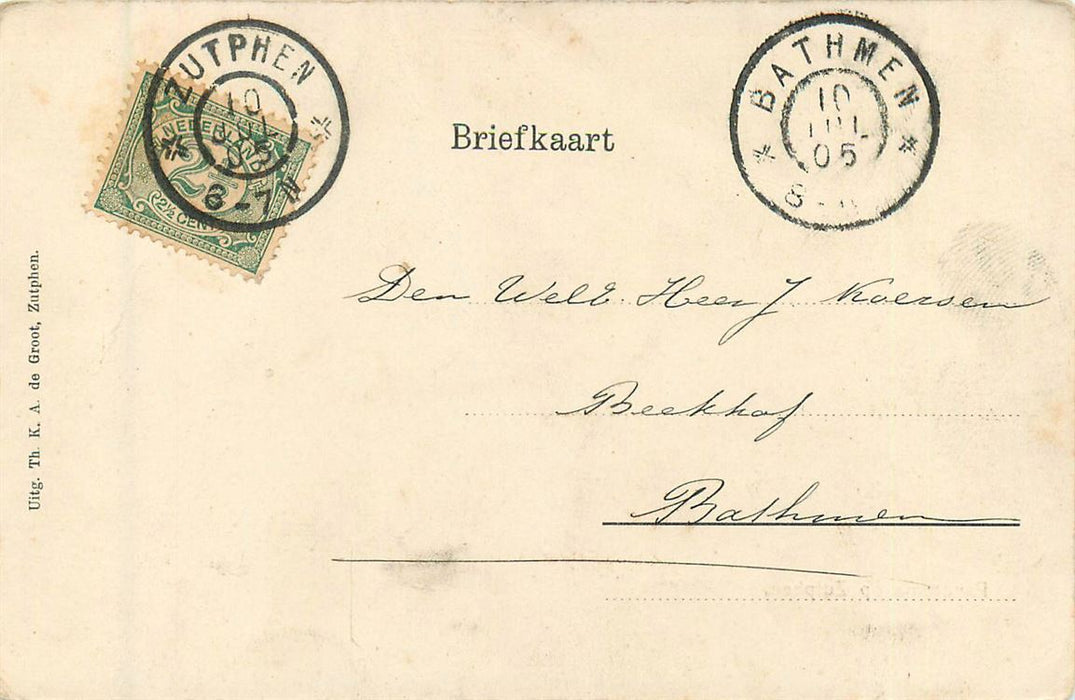 ZUTPHEN
10
JUL
05
6-7N
NEDERLAND
2½
2½ CENT
BATHMEN
10
JUL
05
8-
Briefkaart
Den WelE. Heer J Koersen
Beekhof
Bathmen
Uitg. Th. K. A. de Groot, Zutphen.